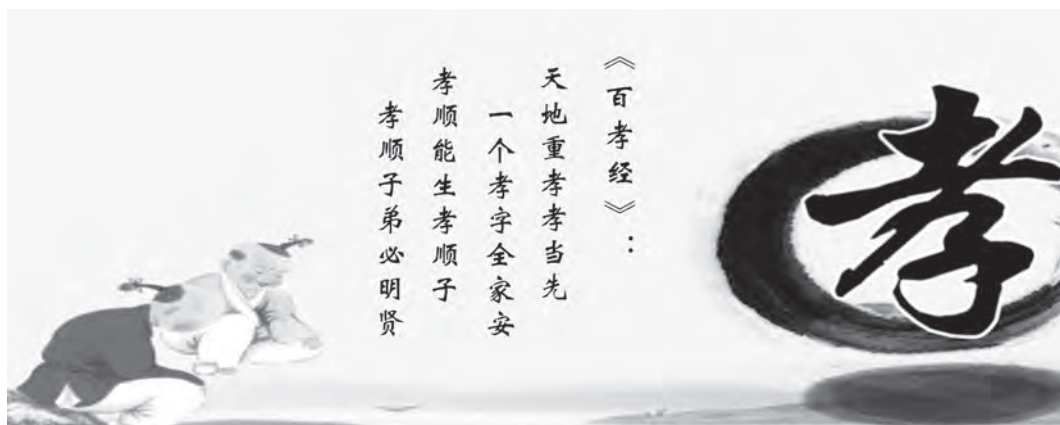 《百孝经》：
天地重孝孝当先
一个孝字全家安
孝顺能生孝顺子
孝顺子弟必明贤
孝